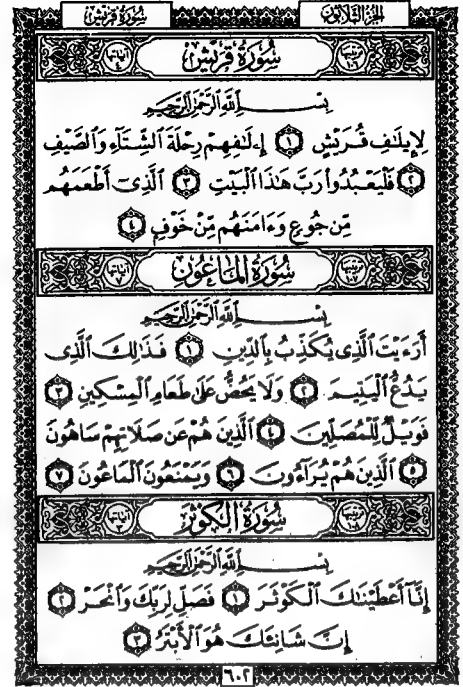 سورة قريش الجزء الثلاثون
ترتيبها ١٠٦ سورة قريش آياتها ٤
بِسْمِ اللَّهِ الرَّحْمَٰنِ الرَّحِيمِ
لِإِيلَٰفِ قُرَيْشٍ ١ إِۦلَٰفِهِمْ رِحْلَةَ الشِّتَآءِ وَالصَّيْفِ
٢ فَلْيَعْبُدُوا۟ رَبَّ هَٰذَا الْبَيْتِ ٣ الَّذِىٓ أَطْعَمَهُم
مِّن جُوعٍ وَءَامَنَهُم مِّنْ خَوْفٍ ٤
ترتيبها ١٠٧ سورة الماعون آياتها ٧
بِسْمِ اللَّهِ الرَّحْمَٰنِ الرَّحِيمِ
أَرَءَيْتَ الَّذِى يُكَذِّبُ بِالدِّينِ ١ فَذَٰلِكَ الَّذِى
يَدُعُّ الْيَتِيمَ ٢ وَلَا يَحُضُّ عَلَىٰ طَعَامِ الْمِسْكِينِ ٣
فَوَيْلٌ لِّلْمُصَلِّينَ ٤ الَّذِينَ هُمْ عَن صَلَاتِهِمْ سَاهُونَ
٥ الَّذِينَ هُمْ يُرَآءُونَ ٦ وَيَمْنَعُونَ الْمَاعُونَ ٧
ترتيبها ١٠٨ سورة الكوثر آياتها ٣
بِسْمِ اللَّهِ الرَّحْمَٰنِ الرَّحِيمِ
إِنَّآ أَعْطَيْنَٰكَ الْكَوْثَرَ ١ فَصَلِّ لِرَبِّكَ وَانْحَرْ ٢
إِنَّ شَانِئَكَ هُوَ الْأَبْتَرُ ٣
٦٠٢